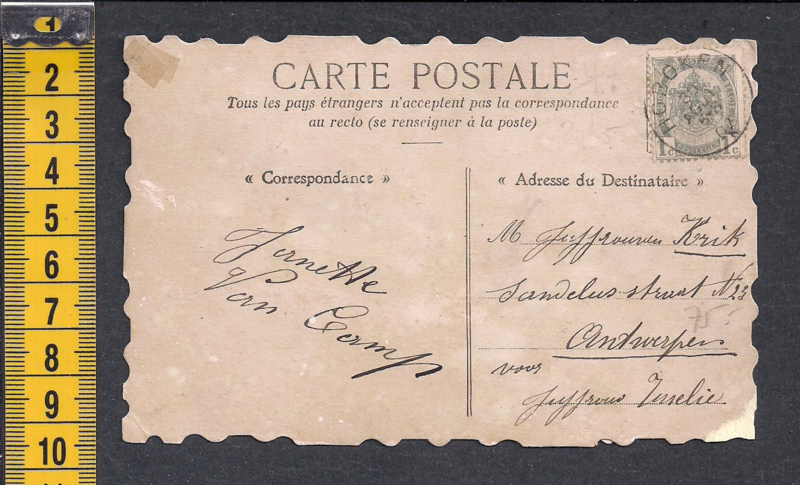 1
2
3
4
5
6
7
8
9
10
CARTE POSTALE
Tous les pays étrangers n'acceptent pas la correspondance
au recto (se renseigner à la poste)
HOBOKEN
1 c. 1 c.
« Correspondance »
« Adresse du Destinataire »
Janette
Van Camp
M Juffrouwen Krik
straat N 23
75.-
Antwerpen
voor
Juffrouw